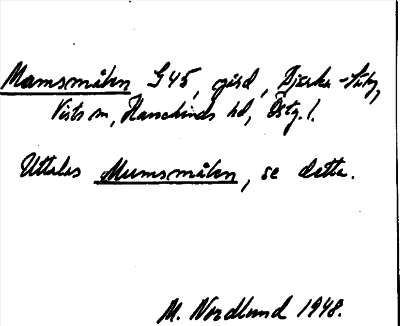 Mamsmåhn G45, gård, Djerka-Säby,
Vists sn, Hanekinds hd, Östg. l.
Uttalas Mumsmåhn, se detta.
M. Nordlund 1948.